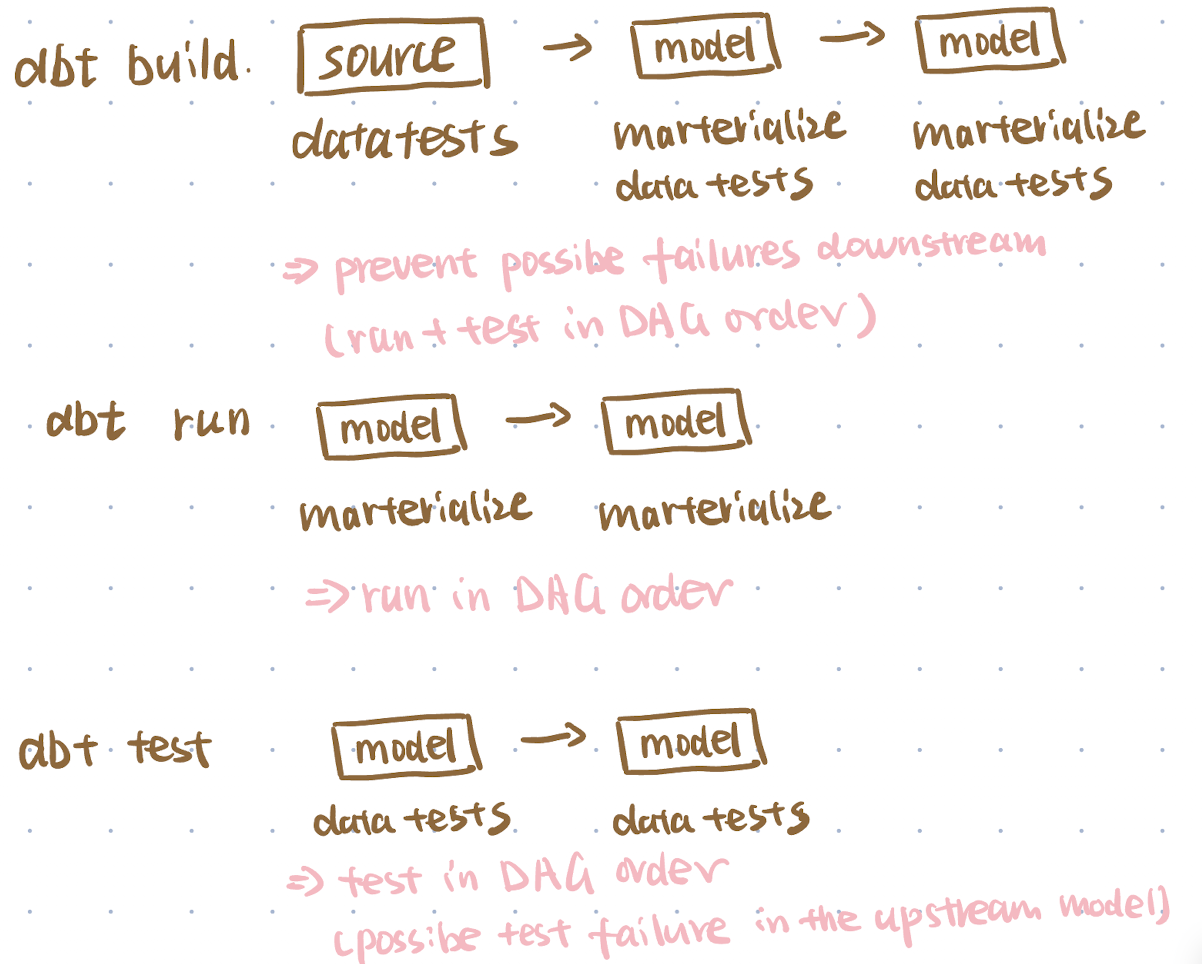 dbt build. source → model → model
datatests marterialize marterialize
data tests data tests
⇒ prevent possibe failures downstream
(run + test in DAG order)
dbt run model → model
marterialize marterialize
⇒ run in DAG order
dbt test model → model
data tests data tests
⇒ test in DAG order
(possibe test failure in the upstream model)